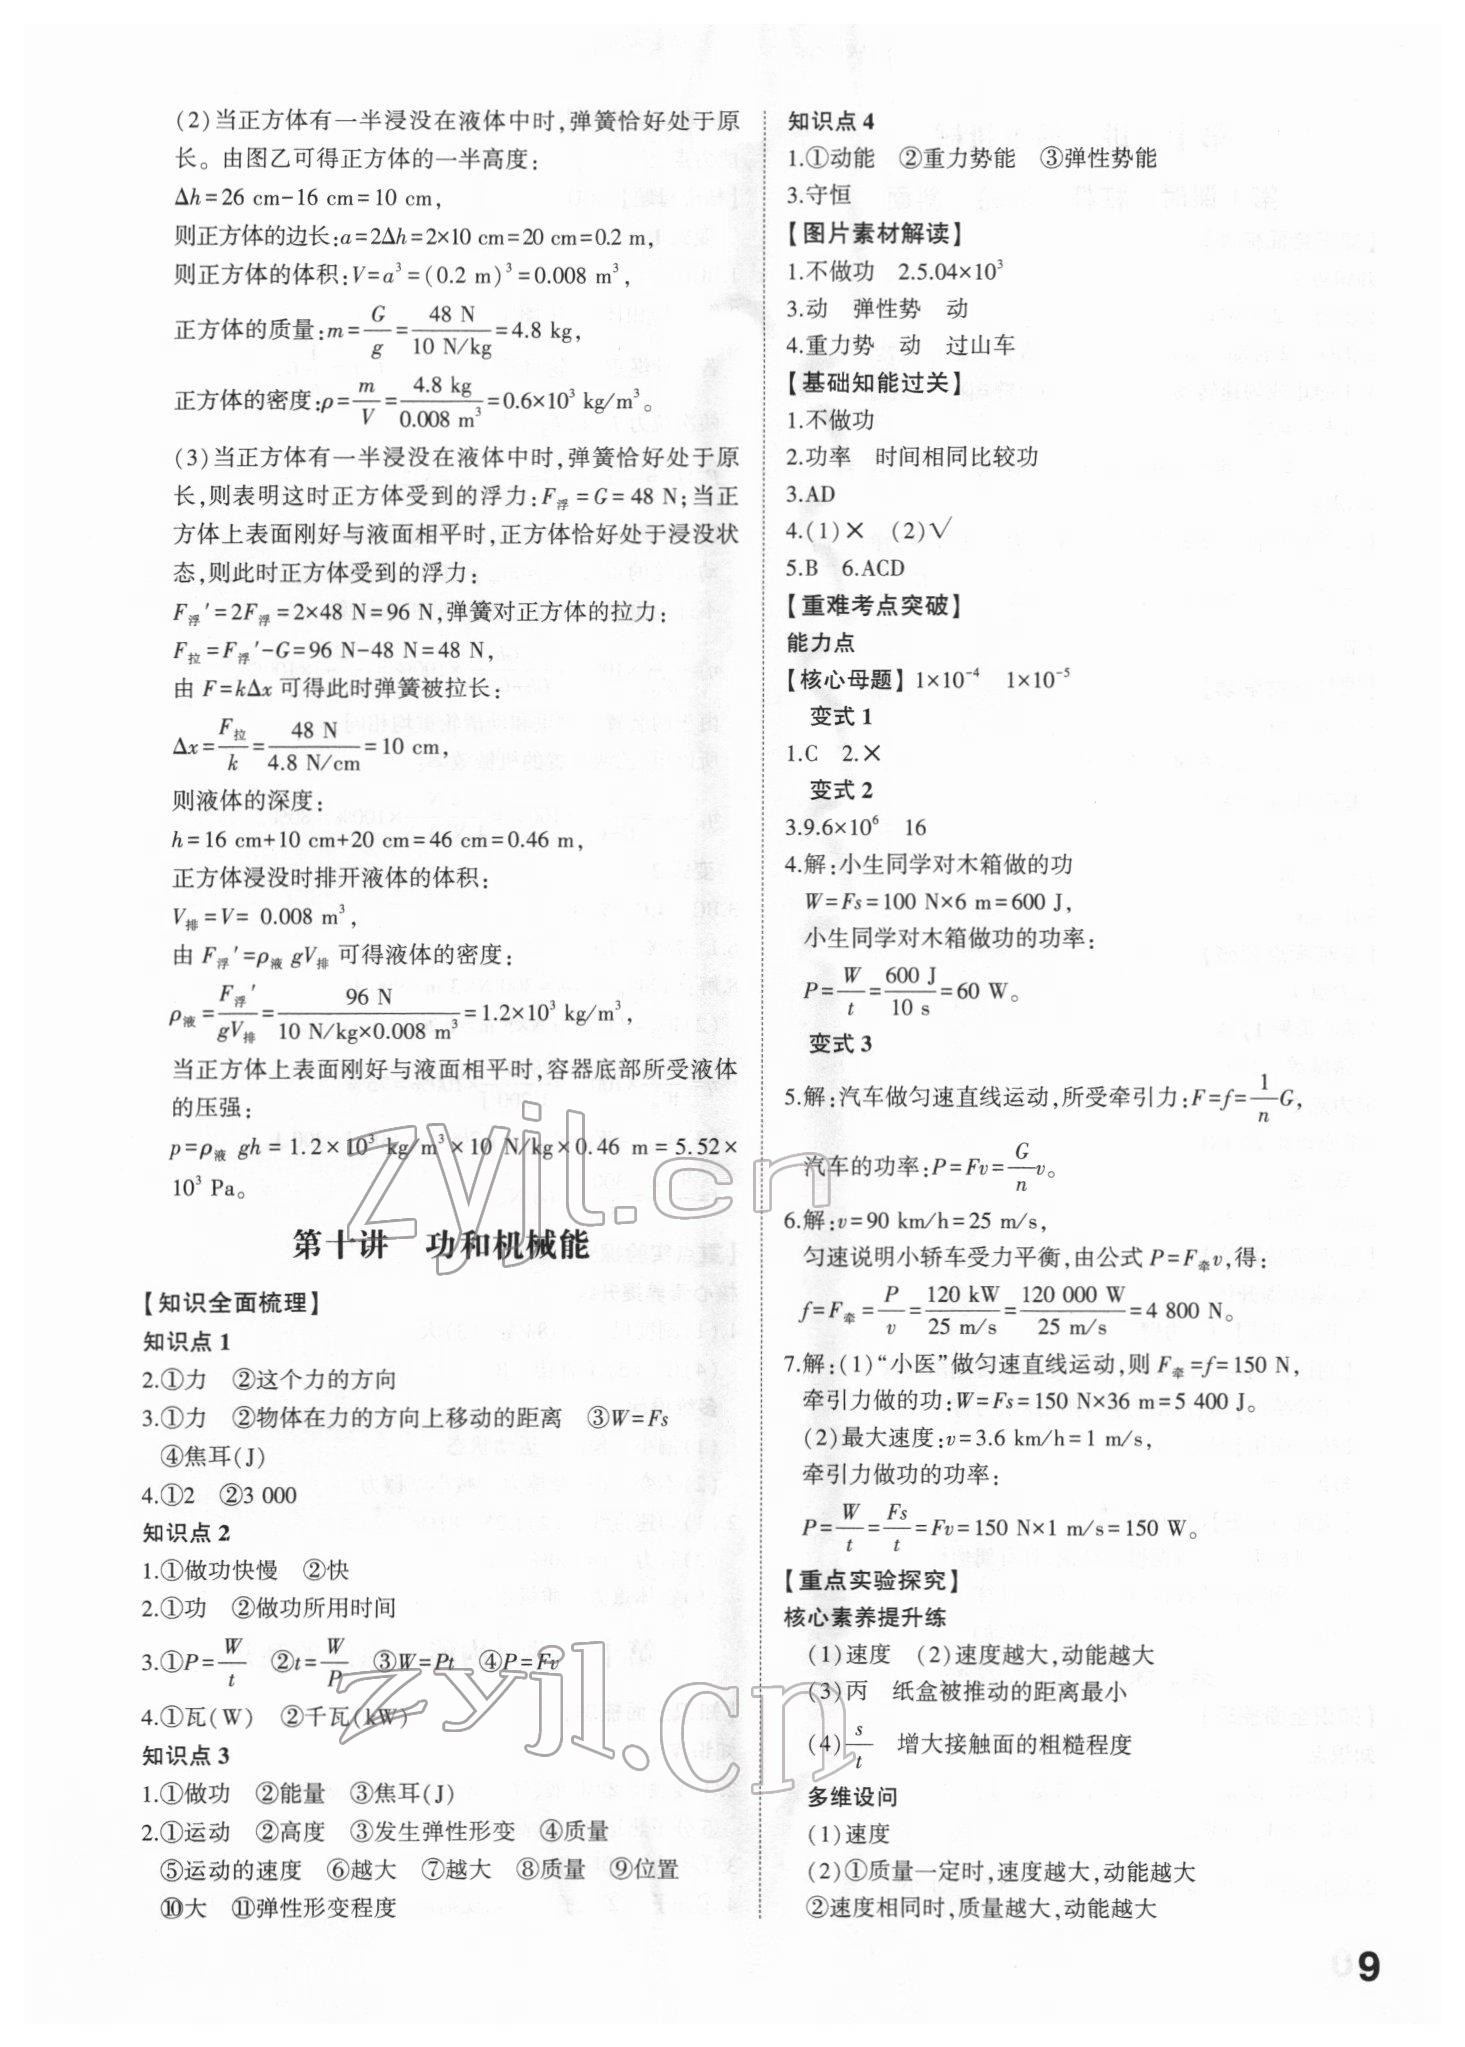 (2)当正方体有一半浸没在液体中时,弹簧恰好处于原
长。由图乙可得正方体的一半高度:
Δh=26 cm-16 cm=10 cm,
则正方体的边长:a=2Δh=2×10 cm=20 cm=0.2 m,
则正方体的体积:V=a³=(0.2 m)³=0.008 m³,
正方体的质量:m=G/g=48 N/10 N/kg=4.8 kg,
正方体的密度:ρ=m/V=4.8 kg/0.008 m³=0.6×10³ kg/m³。
(3)当正方体有一半浸没在液体中时,弹簧恰好处于原
长,则表明这时正方体受到的浮力:F浮=G=48 N;当正
方体上表面刚好与液面相平时,正方体恰好处于浸没状
态,则此时正方体受到的浮力:
F浮′=2F浮=2×48 N=96 N,弹簧对正方体的拉力:
F拉=F浮′-G=96 N-48 N=48 N,
由 F=kΔx 可得此时弹簧被拉长:
Δx=F拉/k=48 N/4.8 N/cm=10 cm,
则液体的深度:
h=16 cm+10 cm+20 cm=46 cm=0.46 m,
正方体浸没时排开液体的体积:
V排=V= 0.008 m³,
由 F浮′=ρ液 gV排 可得液体的密度:
ρ液=F浮′/gV排=96 N/10 N/kg×0.008 m³=1.2×10³ kg/m³,
当正方体上表面刚好与液面相平时,容器底部所受液体
的压强:
p=ρ液 gh = 1.2×10³ kg/m³×10 N/kg×0.46 m=5.52×
10³ Pa。
第十讲 功和机械能
【知识全面梳理】
知识点 1
2.①力 ②这个力的方向
3.①力 ②物体在力的方向上移动的距离 ③W=Fs
④焦耳(J)
4.①2 ②3 000
知识点 2
1.①做功快慢 ②快
2.①功 ②做功所用时间
3.①P=W/t ②t=W/P ③W=Pt ④P=Fv
4.①瓦(W) ②千瓦(kW)
知识点 3
1.①做功 ②能量 ③焦耳(J)
2.①运动 ②高度 ③发生弹性形变 ④质量
⑤运动的速度 ⑥越大 ⑦越大 ⑧质量 ⑨位置
⑩大 ⑪弹性形变程度
知识点 4
1.①动能 ②重力势能 ③弹性势能
3.守恒
【图片素材解读】
1.不做功 2.5.04×10³
3.动 弹性势 动
4.重力势 动 过山车
【基础知能过关】
1.不做功
2.功率 时间相同比较功
3.AD
4.(1)✕ (2)√
5.B 6.ACD
【重难考点突破】
能力点
【核心母题】1×10⁻⁴ 1×10⁻⁵
变式 1
1.C 2.✕
变式 2
3.9.6×10⁶ 16
4.解:小生同学对木箱做的功
W=Fs=100 N×6 m=600 J,
小生同学对木箱做功的功率:
P=W/t=600 J/10 s=60 W。
变式 3
5.解:汽车做匀速直线运动,所受牵引力:F=f=1/n G,
汽车的功率:P=Fv=G/n v。
6.解:v=90 km/h=25 m/s,
匀速说明小轿车受力平衡,由公式 P=F牵v,得:
f=F牵=P/v=120 kW/25 m/s=120 000 W/25 m/s=4 800 N。
7.解:(1)“小医”做匀速直线运动,则 F牵=f=150 N,
牵引力做的功:W=Fs=150 N×36 m=5 400 J。
(2)最大速度:v=3.6 km/h=1 m/s,
牵引力做功的功率:
P=W/t=Fs/t=Fv=150 N×1 m/s=150 W。
【重点实验探究】
核心素养提升练
(1)速度 (2)速度越大,动能越大
(3)丙 纸盒被推动的距离最小
(4)s/t 增大接触面的粗糙程度
多维设问
(1)速度
(2)①质量一定时,速度越大,动能越大
②速度相同时,质量越大,动能越大
9
zyjl.cn
zyjl.cn